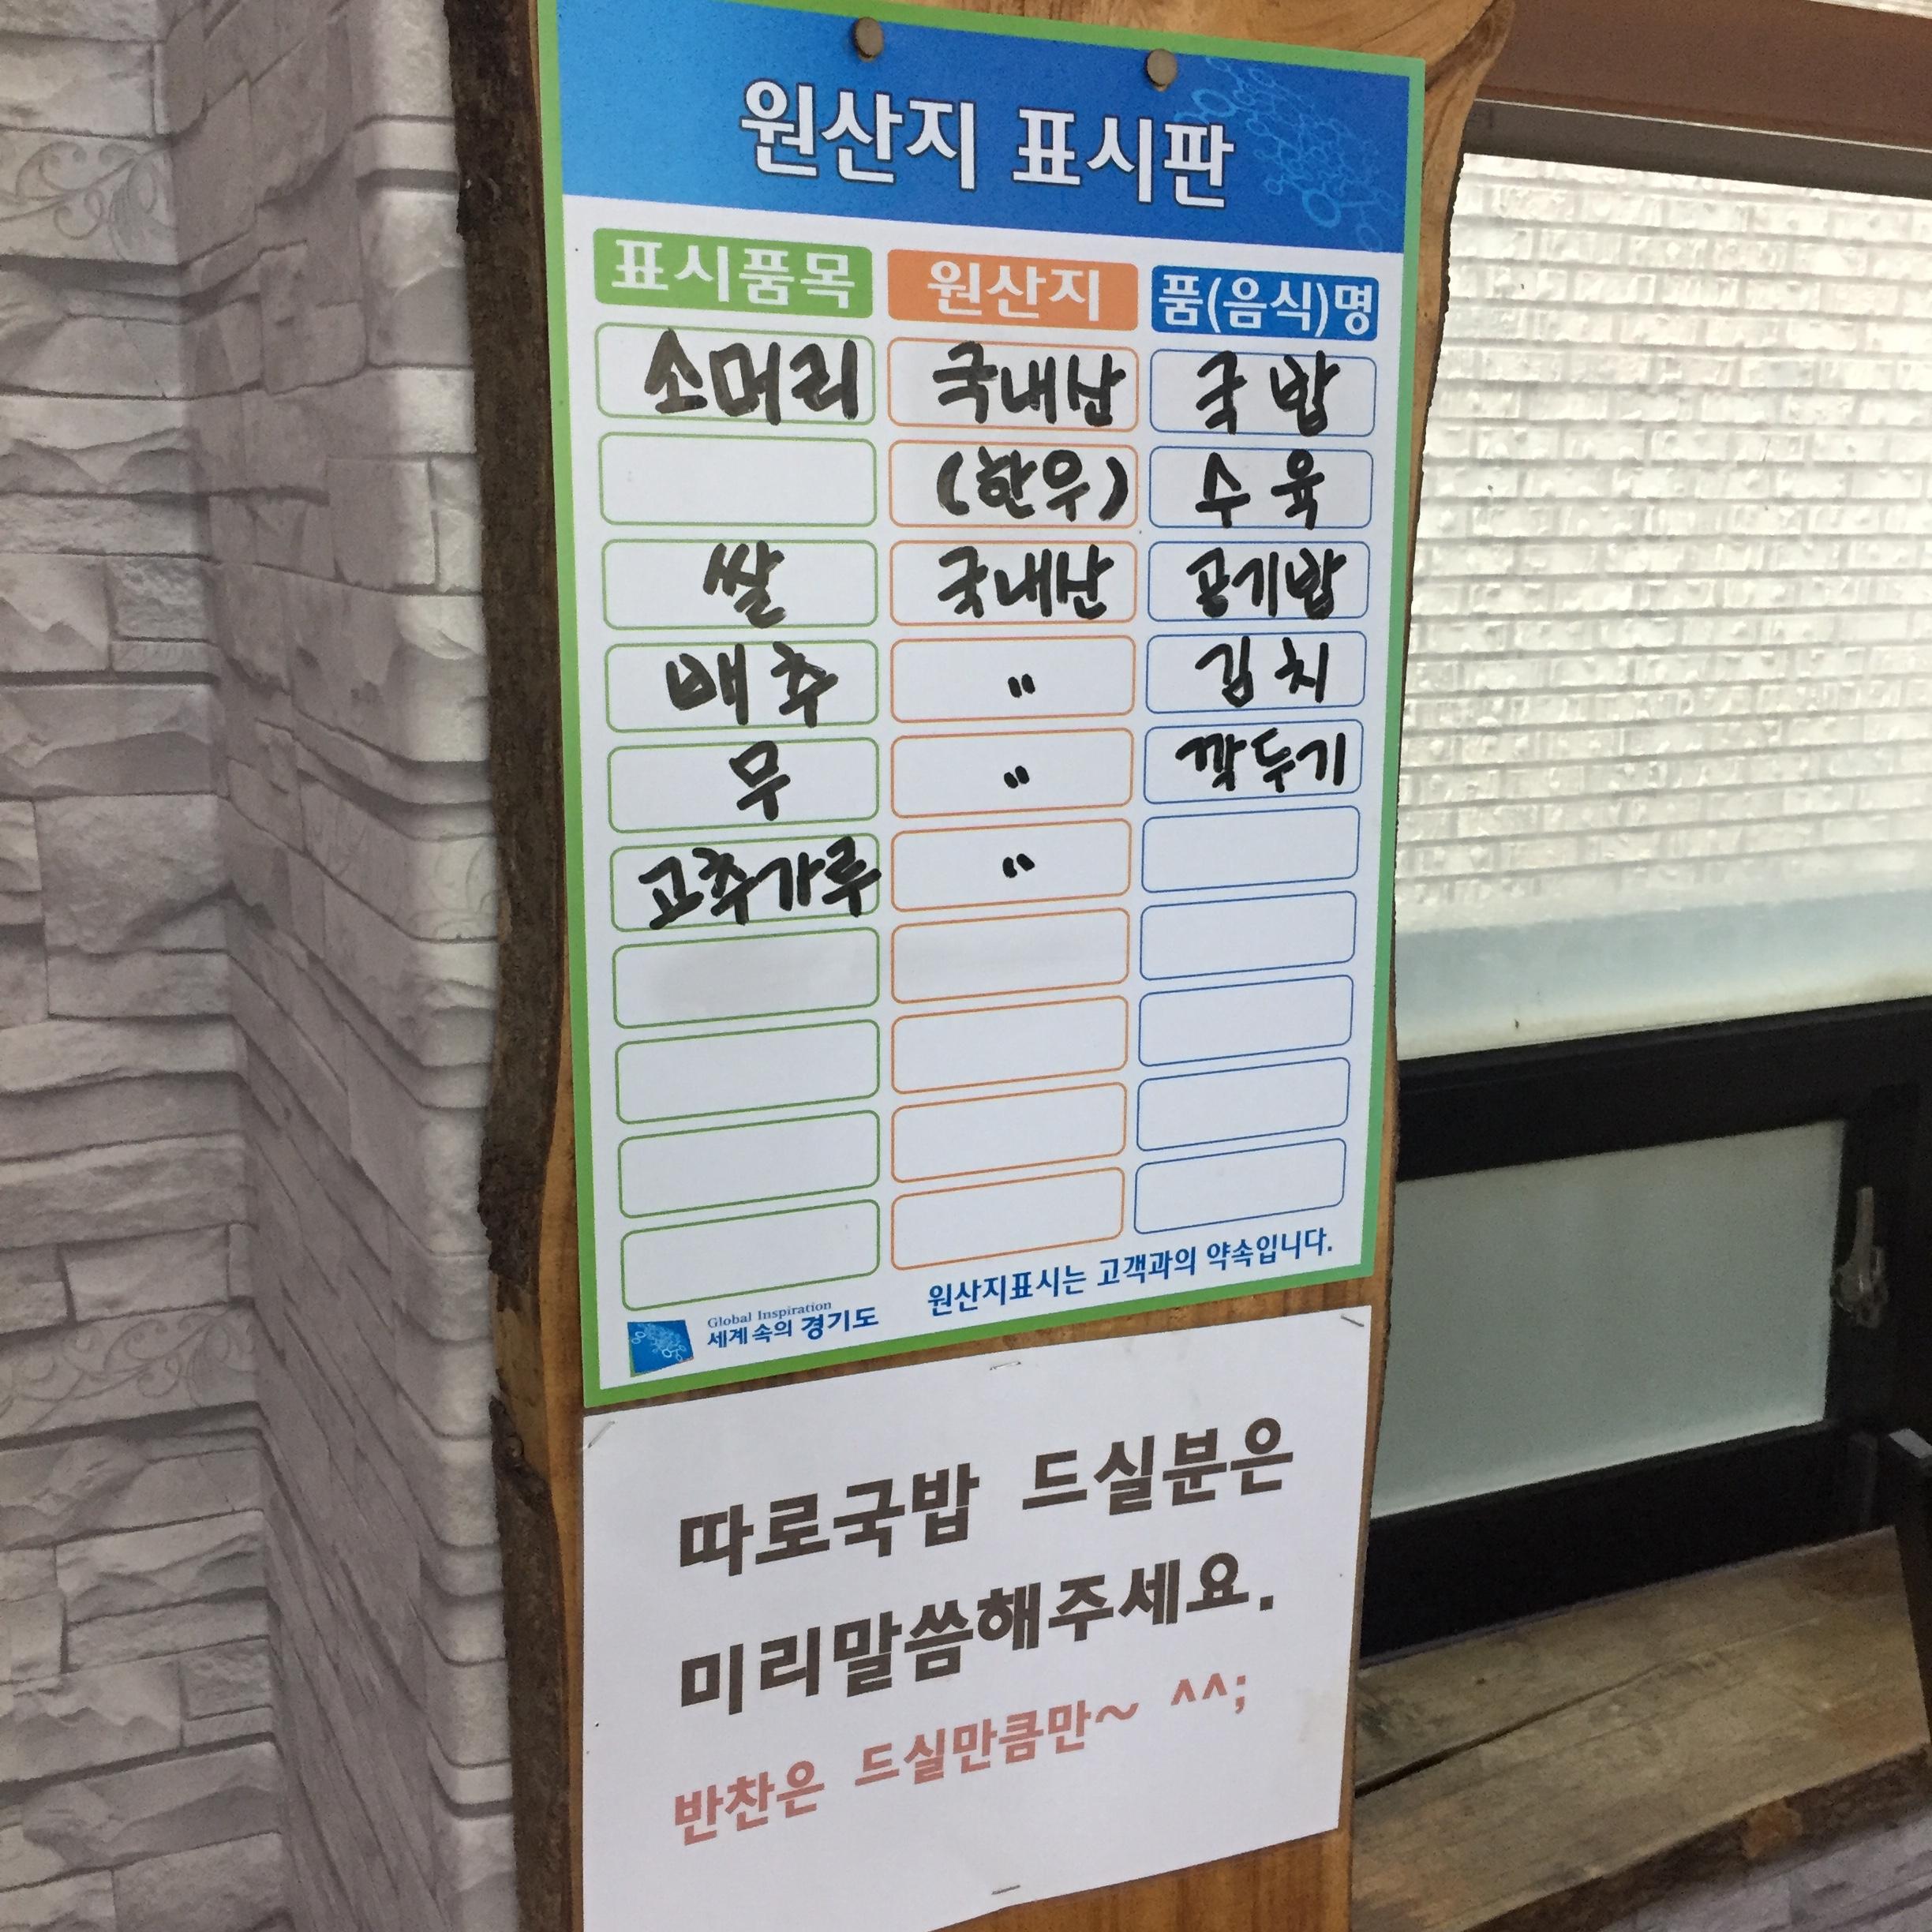 원산지 표시판
표시품목 원산지 품(음식)명
소머리 국내산 국밥
(한우) 수육
쌀 국내산 공기밥
배추 " 김치
무 " 깍두기
고추가루 "
원산지표시는 고객과의 약속입니다.
Global Inspiration
세계 속의 경기도
따로국밥 드실분은
미리말씀해주세요.
반찬은 드실만큼만~ ^^;